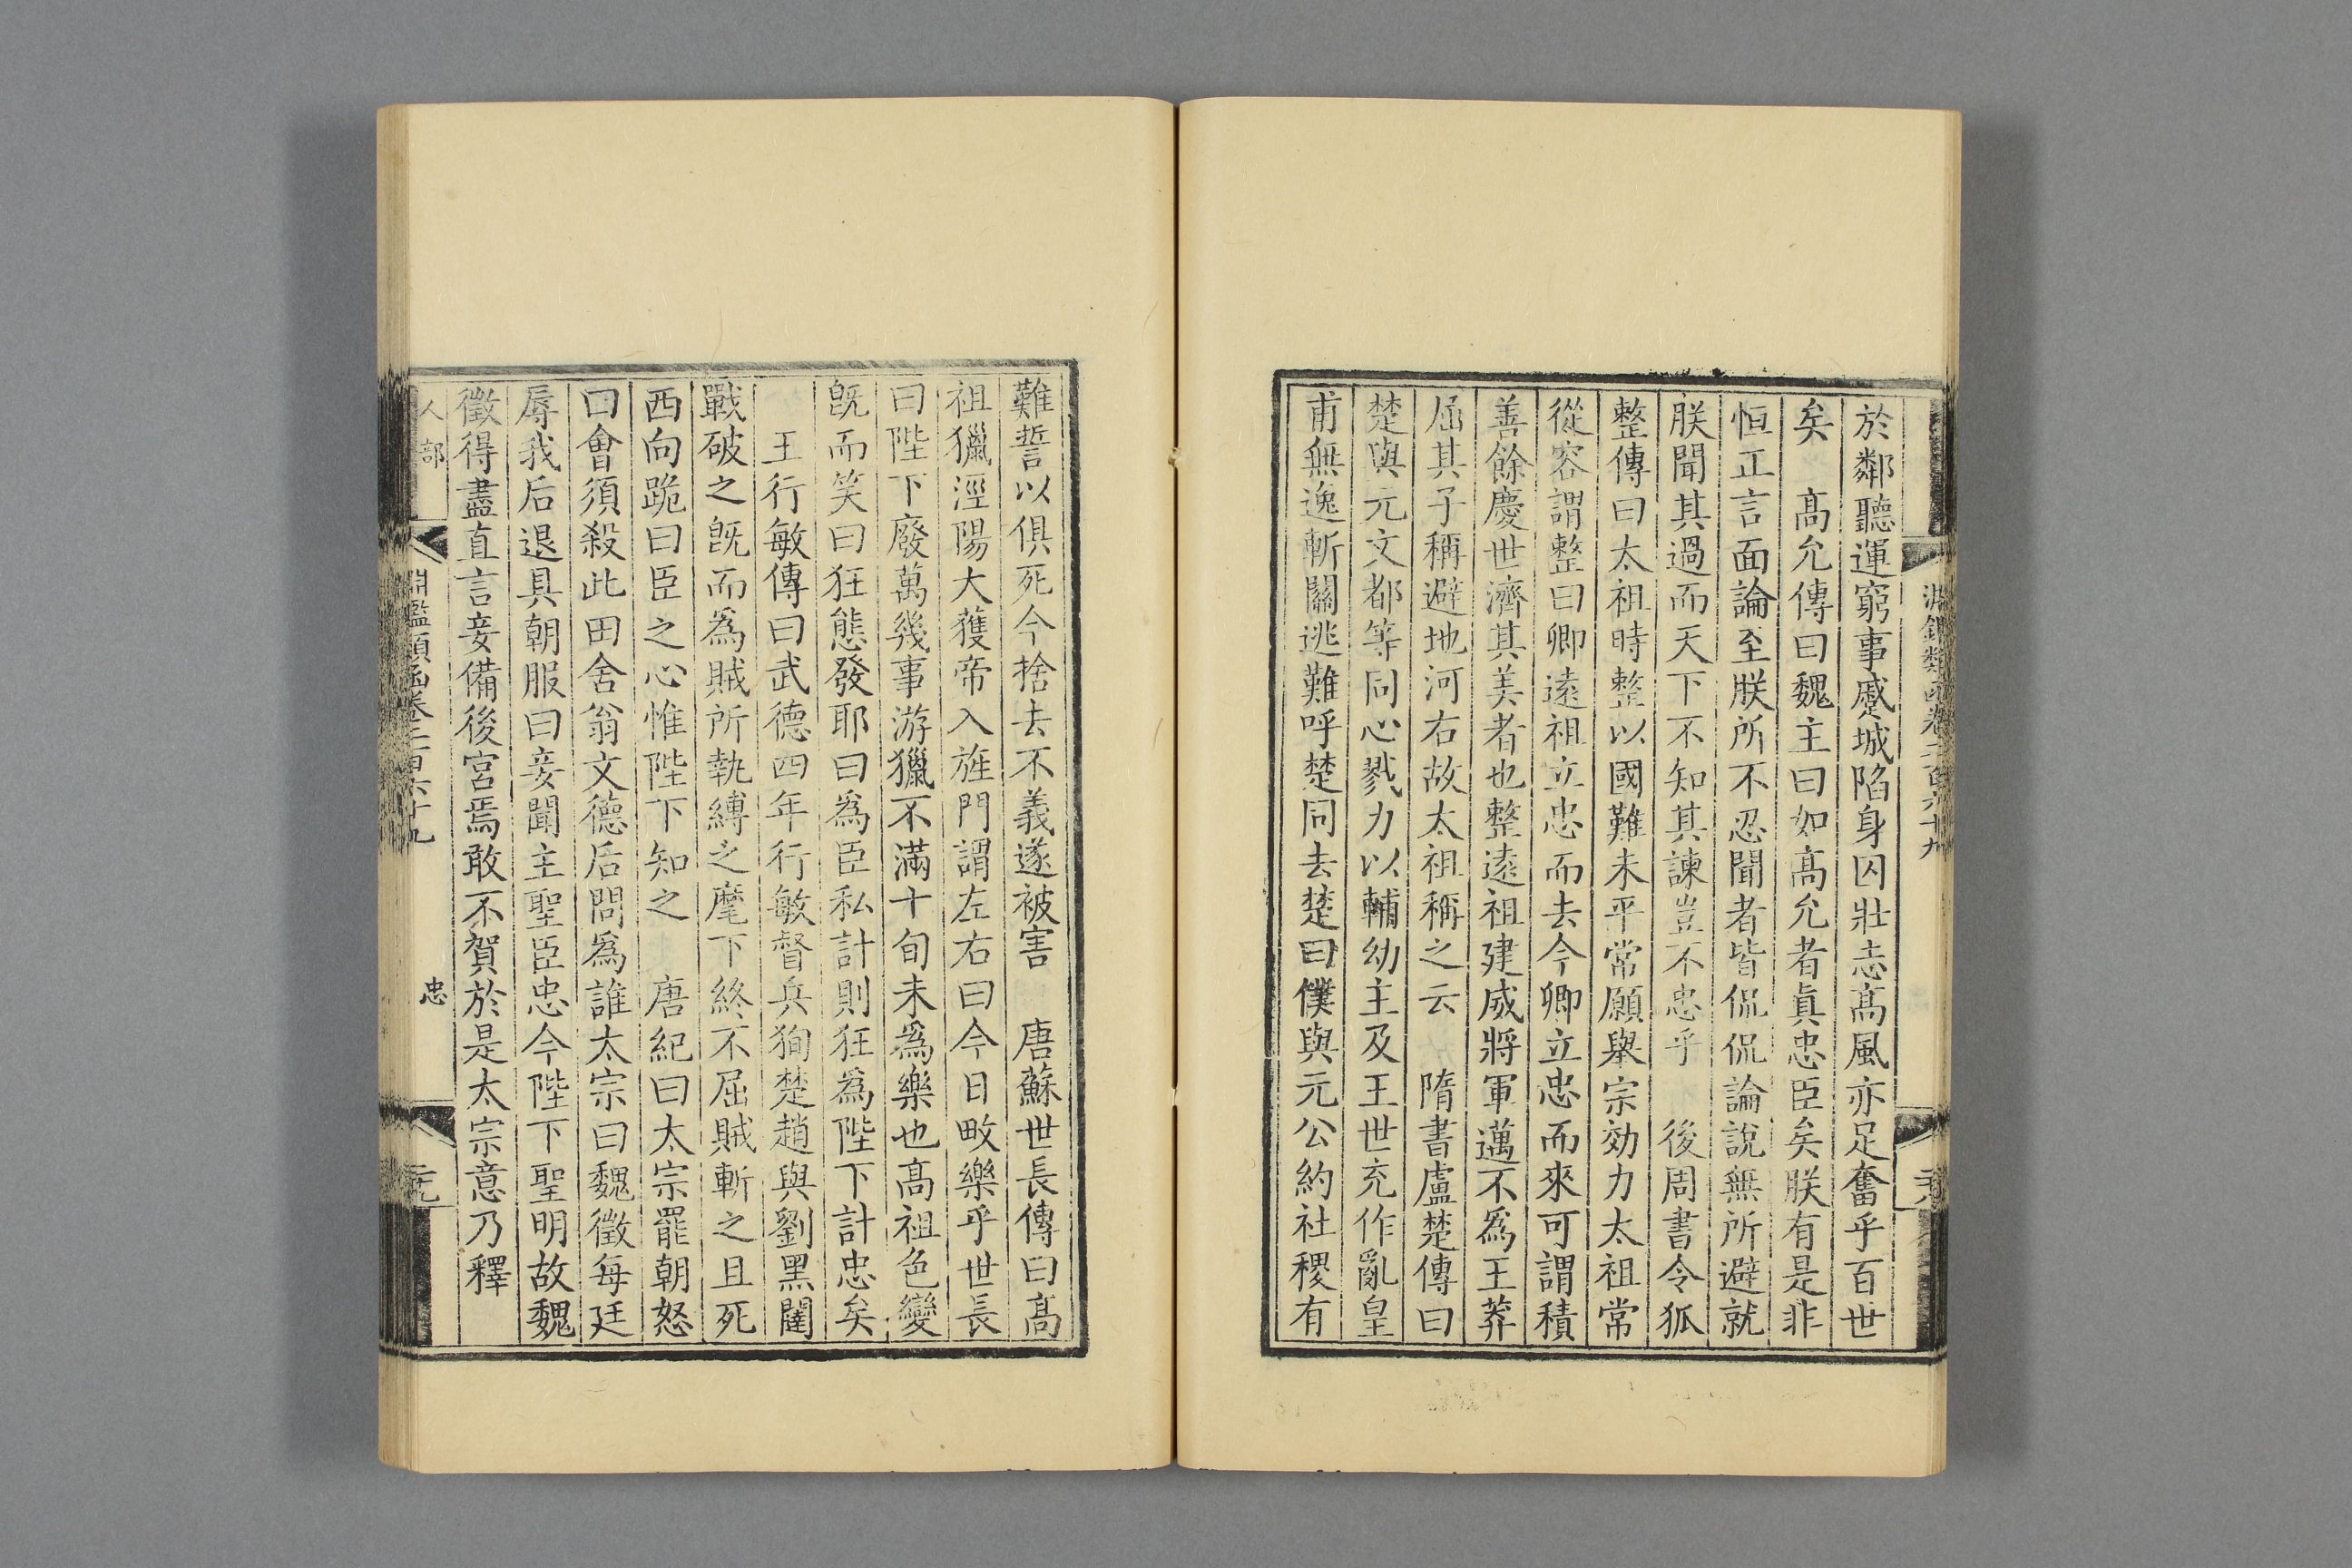 於鄰聽運窮事蹙城陷身囚壯志髙風亦足奮乎百世
矣　髙允傳曰魏主曰如髙允者眞忠臣矣朕有是非
恒正言面論至朕所不忍聞者皆侃侃論說無所避就
朕聞其過而天下不知其諫豈不忠乎　後周書令狐
整傳曰太祖時整以國難未平常願舉宗効力太祖常
從容謂整曰卿遠祖立忠而去今卿立忠而來可謂積
善餘慶世濟其美者也整遠祖建威將軍邁不爲王莽
屈其子稱避地河右故太祖稱之云　隋書盧楚傳曰
楚與元文都等同心戮力以輔幼主及王世充作亂皇
甫無逸斬關逃難呼楚同去楚曰僕與元公約社稷有
難誓以俱死今捨去不義遂被害　唐蘇世長傳曰髙
祖獵涇陽大獲帝入旌門謂左右曰今日畋樂乎世長
曰陛下廢萬幾事游獵不滿十旬未爲樂也髙祖色變
旣而笑曰狂態發耶曰爲臣私計則狂爲陛下計忠矣
　王行敏傳曰武德四年行敏督兵狥楚趙與劉黑闥
戰破之旣而爲賊所執縛之麾下終不屈賊斬之且死
西向跪曰臣之心惟陛下知之　唐紀曰太宗罷朝怒
曰會須殺此田舍翁文德后問爲誰太宗曰魏徵每廷
辱我后退具朝服曰妾聞主聖臣忠今陛下聖明故魏
徵得盡直言妾備後宮焉敢不賀於是太宗意乃釋
人部
淵鑑類函卷二百六十九
忠